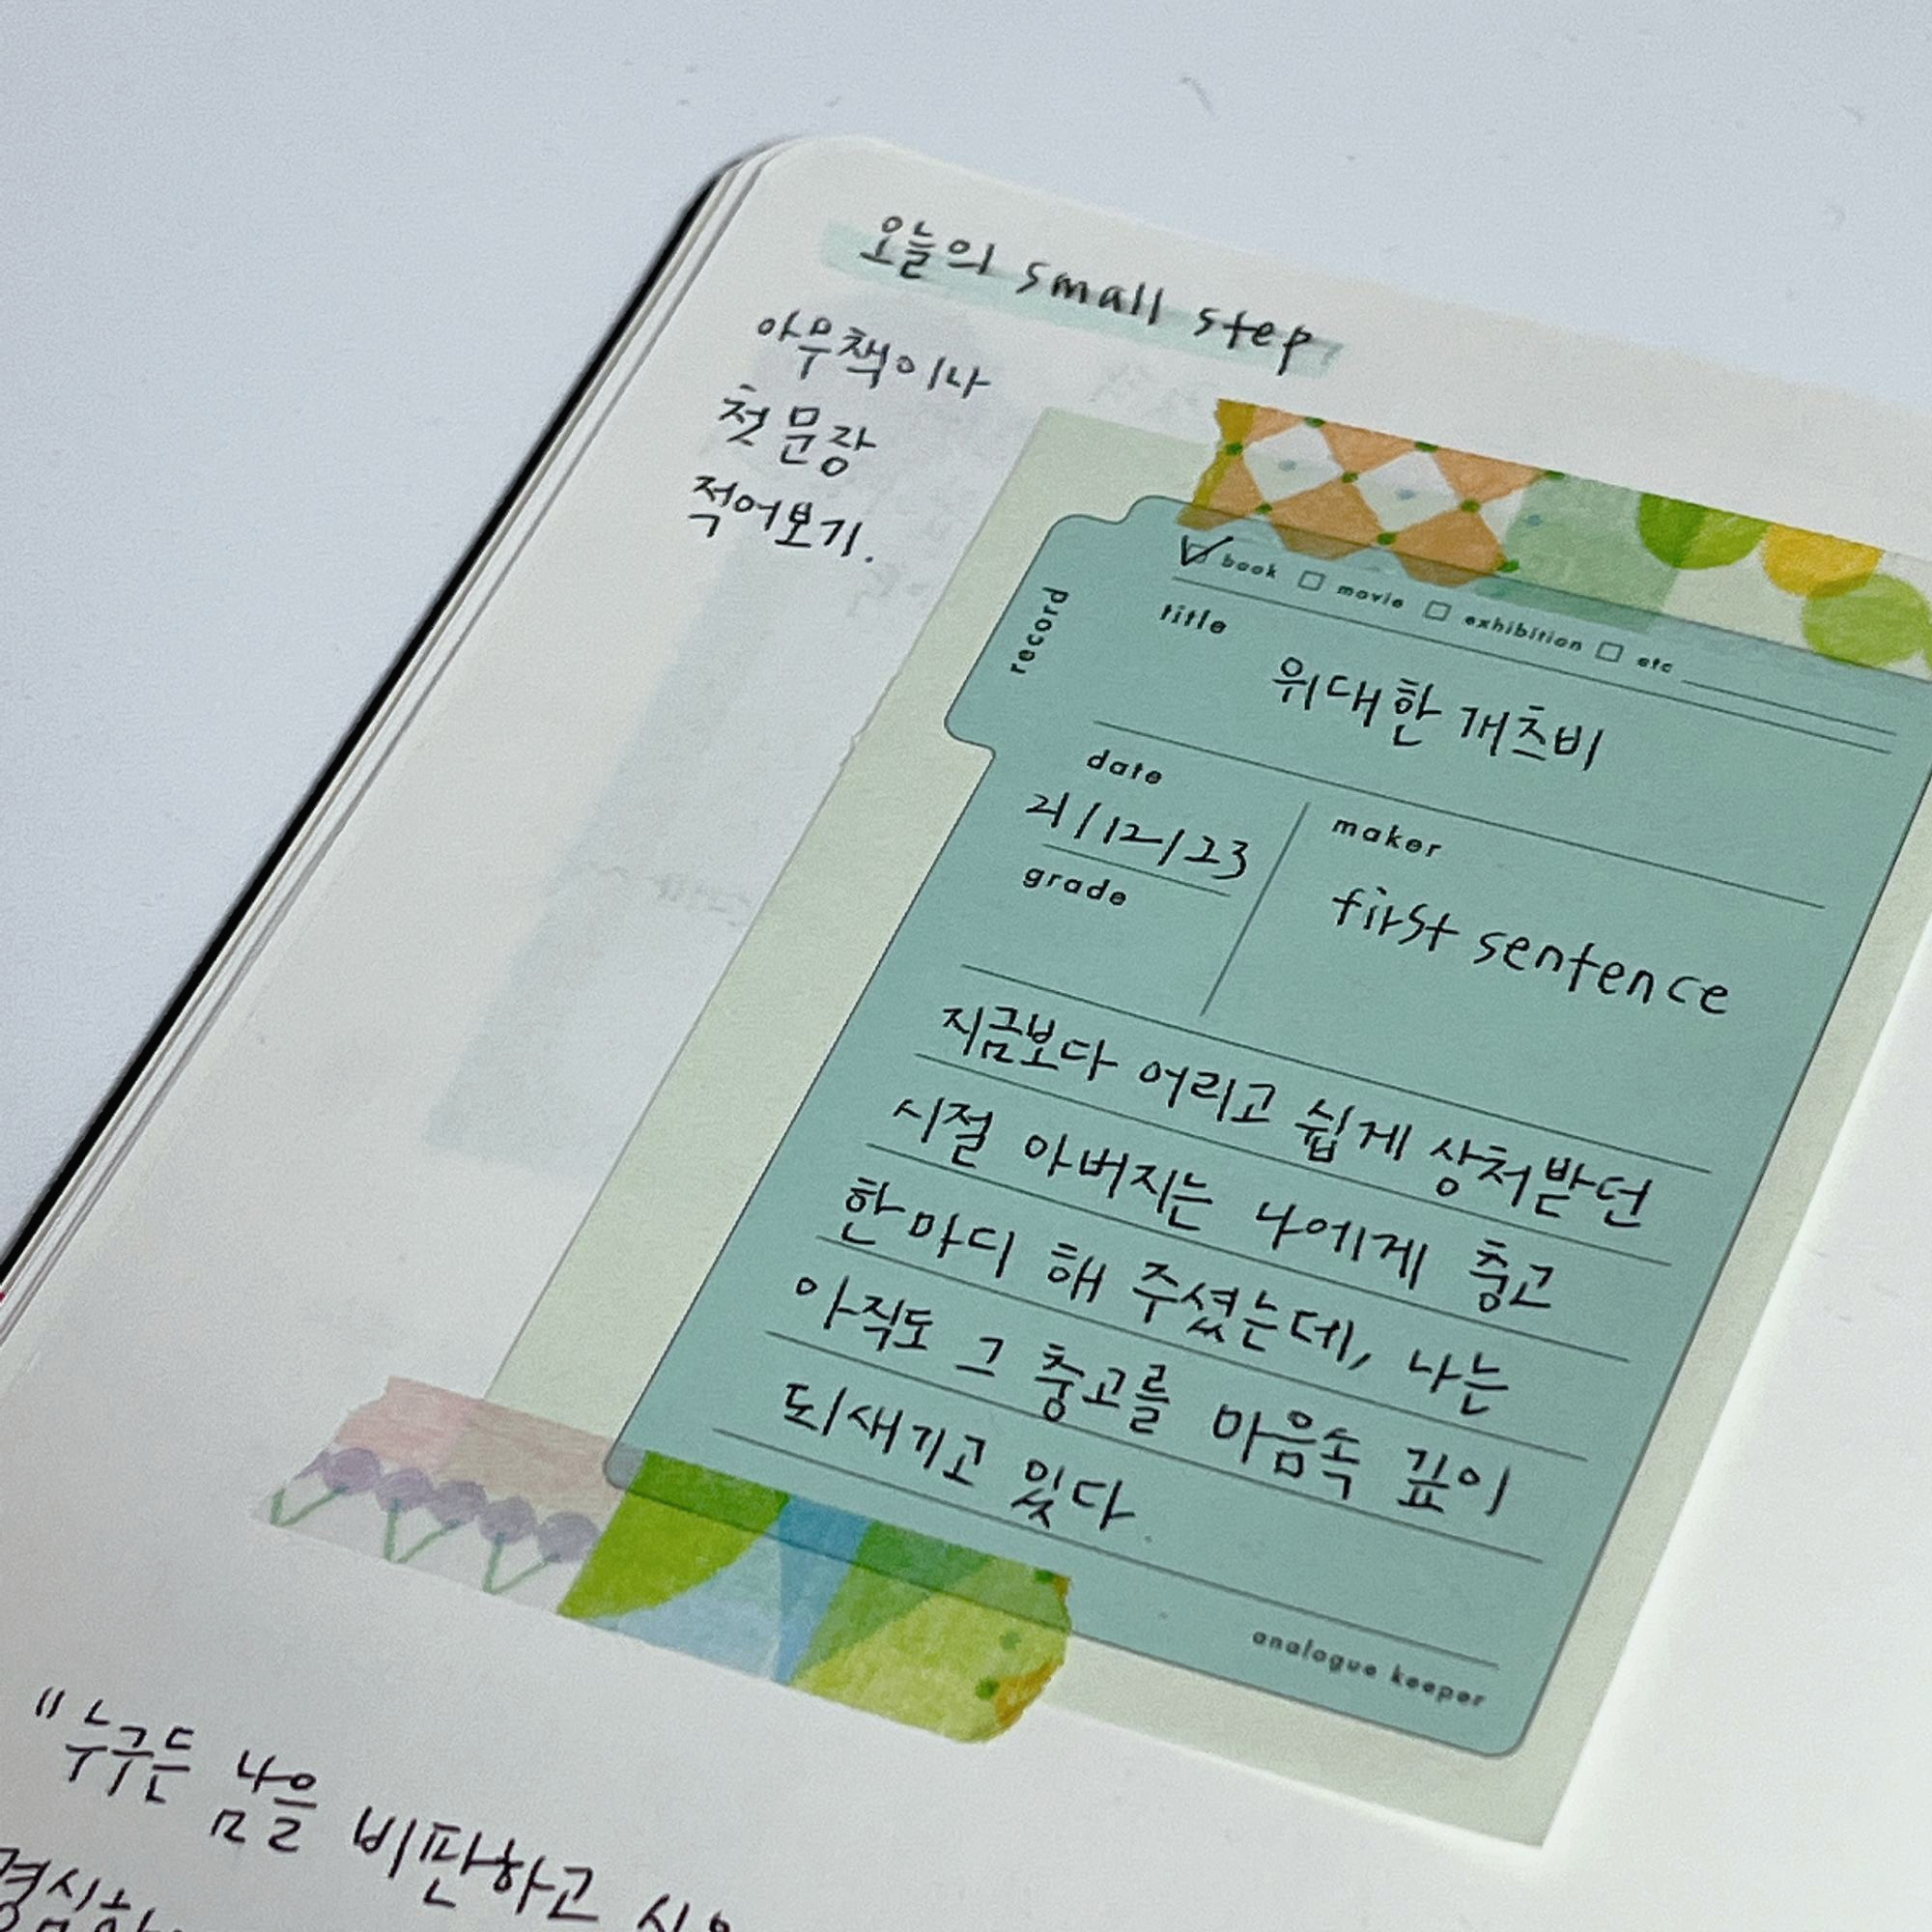 오늘의 small step
아무책이나
첫 문장
적어보기.
book movie exhibition etc
record
title
위대한 개츠비
date
21/12/23
maker
first sentence
grade
지금보다 어리고 쉽게 상처받던
시절 아버지는 나에게 충고
한마디 해 주셨는데, 나는
아직도 그 충고를 마음속 깊이
되새기고 있다.
analogue keeper
"누구든 남을 비판하고